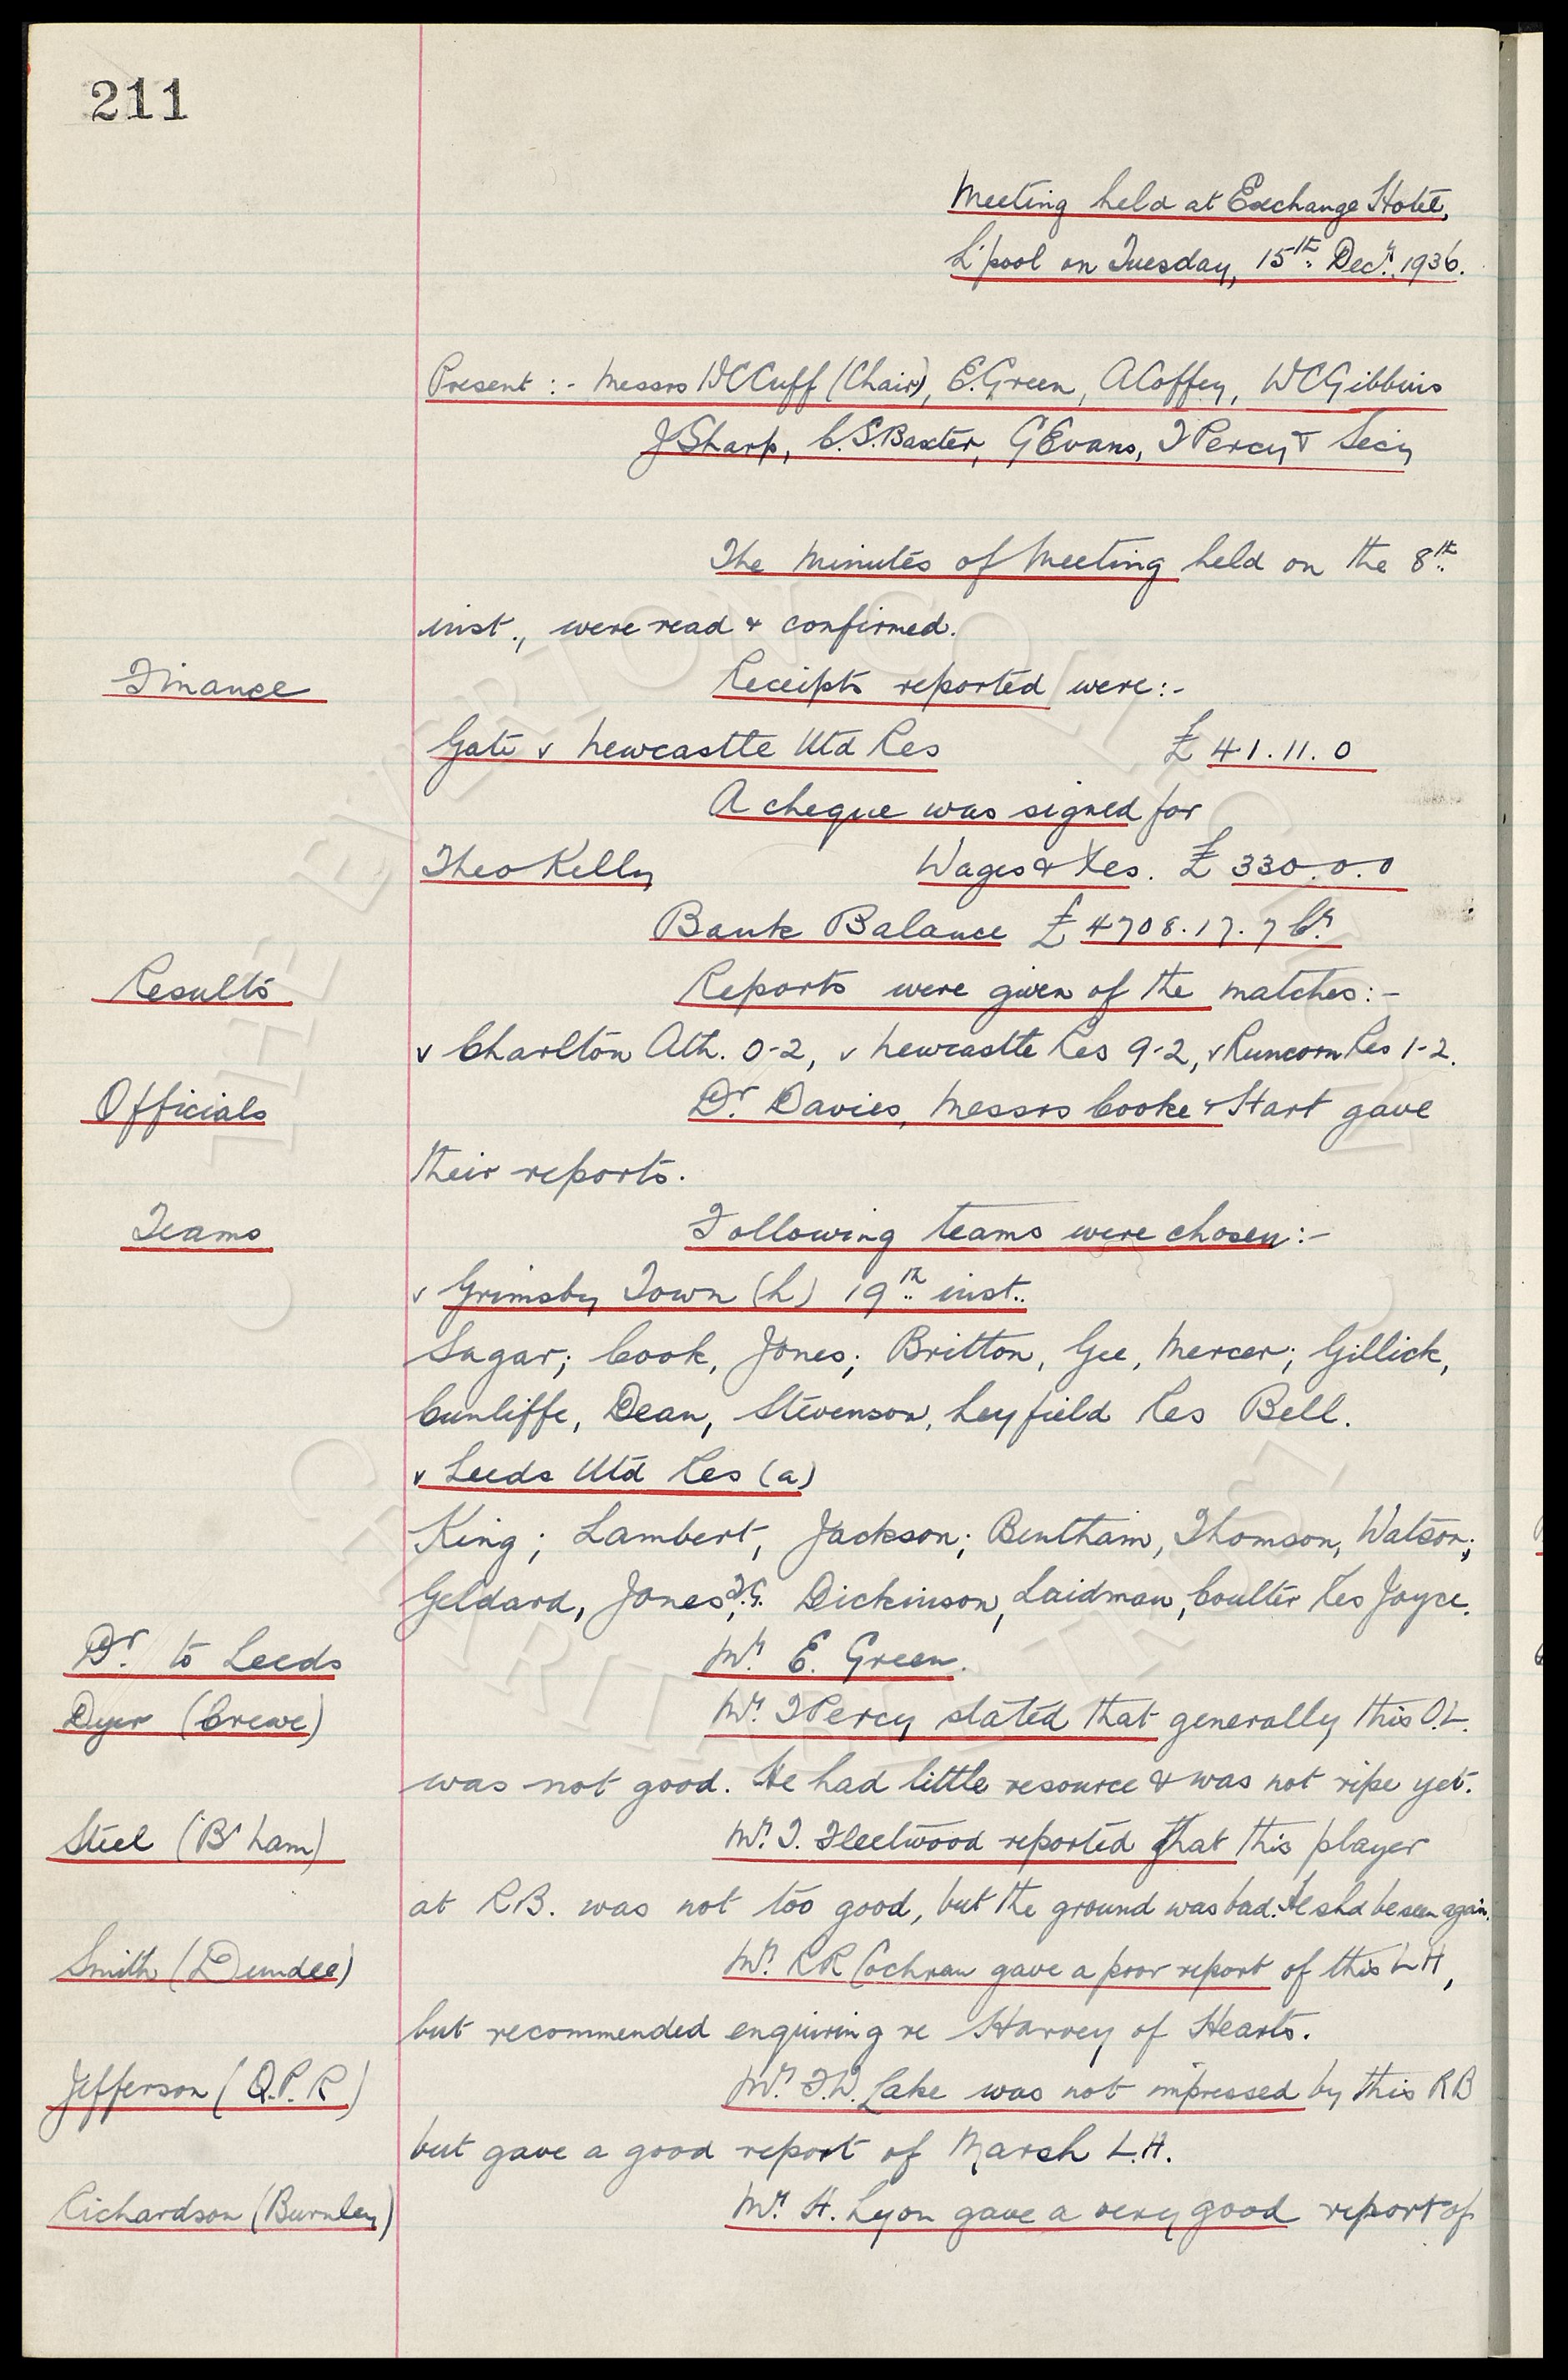 211
Meeting held at Exchange Hotel,
L'pool on Tuesday, 15th Decr. 1936.
Present :- Messrs W C Cuff (Chair), E. Green, A Coffey, W C Gibbins
J Sharp, C. S. Baxter, G Evans, T Percy & Secy
The Minutes of Meeting held on the 8th
inst., were read & confirmed.
Finance Receipts reported were:-
Gate v Newcastle Utd Res £ 41. 11. 0
A cheque was signed for
Theo Kelly Wages & Xes. £ 330. 0. 0
Bank Balance £ 4708. 17. 7 Cr.
Results Reports were given of the matches:-
v Charlton Ath. 0-2, v Newcastle Res 9-2, v Runcorn Res 1-2.
Officials Dr. Davies, Messrs Cooke & Hart gave
their reports.
Teams Following teams were chosen:-
v Grimsby Town (h) 19th inst.
Sagar; Cook, Jones; Britton, Gee, Mercer; Gillick,
Cunliffe, Dean, Stevenson, Leyfield Res Bell.
v Leeds Utd Res (a)
King; Lambert, Jackson; Bentham, Thomson, Watson;
Geldard, Jones, T.G. Dickinson, Laidman, Coulter Res Joyce.
Dr. to Leeds Mr. E. Green.
Dyer (Crewe) Mr. T Percy stated that generally this O.L.
was not good. He had little resource & was not ripe yet.
Steel (B'ham) Mr. T. Fleetwood reported that this player
at R B. was not too good, but the ground was bad. He shd be seen again.
Smith (Dundee) Mr. R R Cochran gave a poor report of this L H,
but recommended enquiring re Harvey of Hearts.
Jefferson (Q.P.R) Mr. F. W. Lake was not impressed by this R B
but gave a good report of Marsh L.H.
Richardson (Burnley) Mr. H. Lyon gave a very good report of